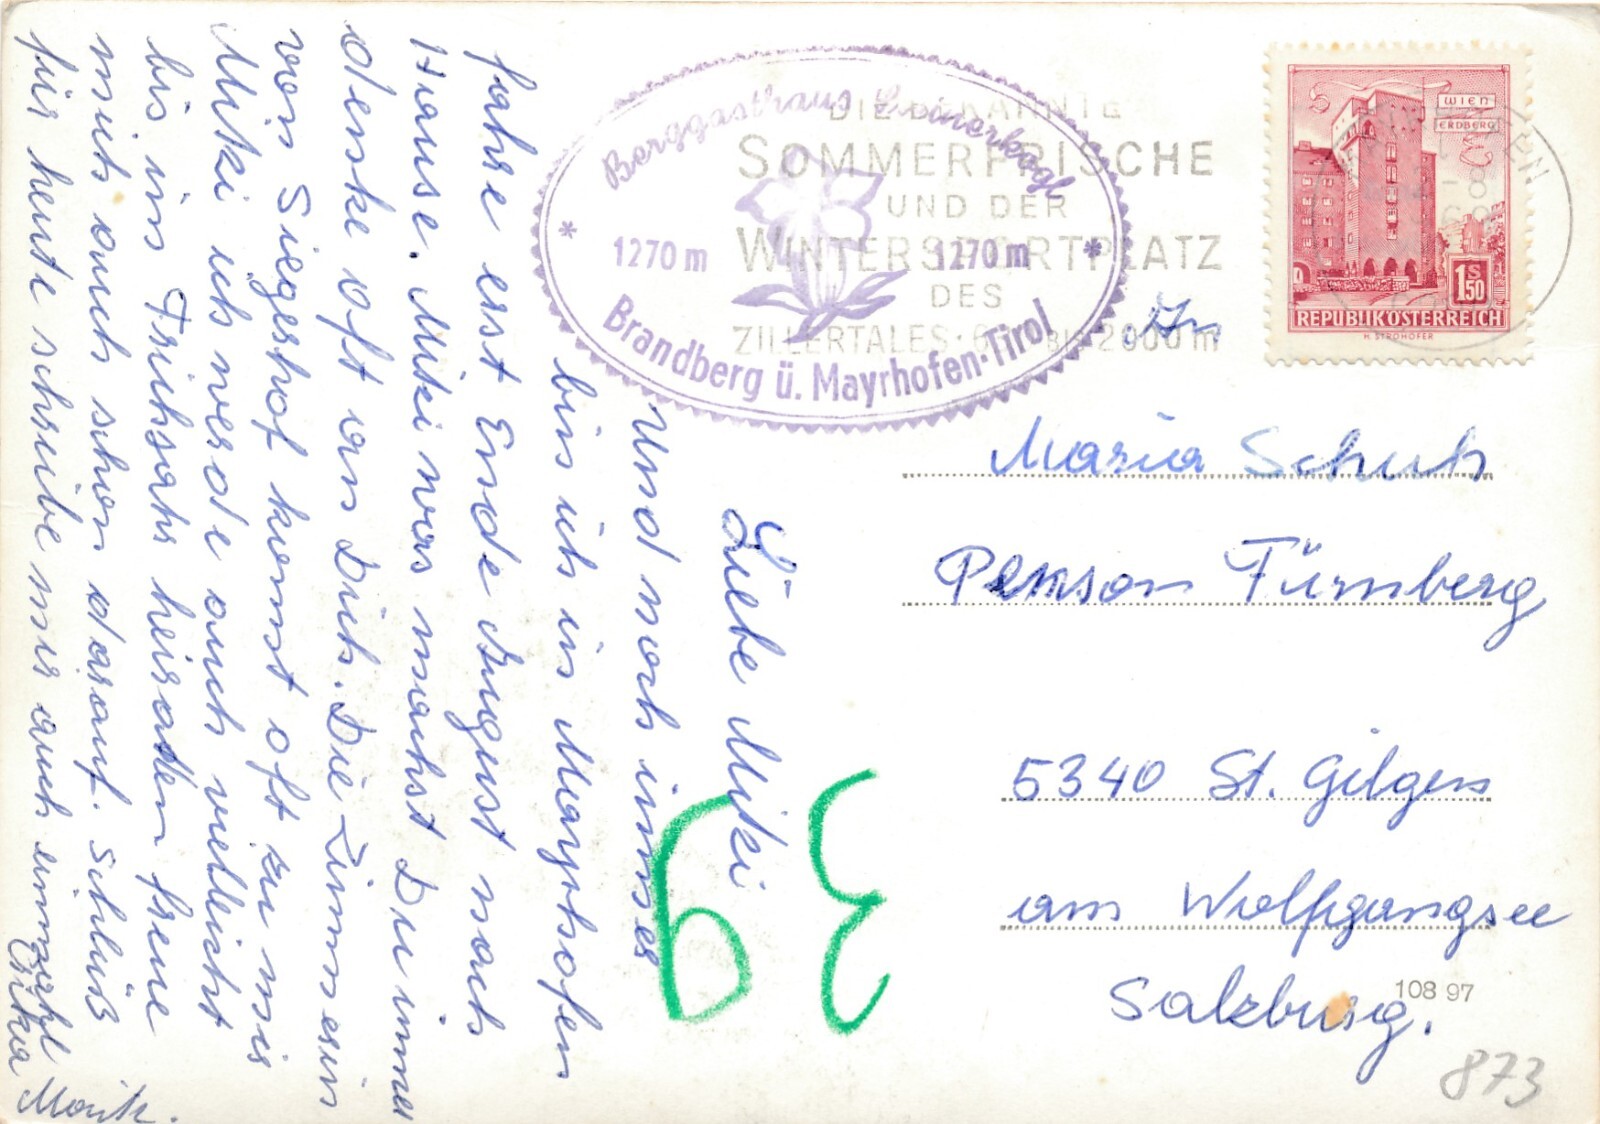 Liebe Miki
Und noch immer
bin ich in Mayrhofen
fahre erst Ende August nach
Hause. Miki was machst Du immer
denke oft an Dich. Die Zimmerin
von Siegeshof kommt oft zu mir
Miki ich werde auch vielleicht
bis im Frühjahr heiraten freue
mich auch schon darauf. Schluß
für heute schreibe mir auch einmahl
Erika
Berggasthaus
1270 m 1270 m
Brandberg ü. Mayrhofen-Tirol
DIE BEKANNTE
SOMMERFRISCHE
UND DER
WINTERSPORTPLATZ
DES
ZILLERTALES · BIS 2000 m
WIEN
ERDBERG
1S
50
REPUBLIK ÖSTERREICH
H. STROHOFER
An
Maria Schuh
Pension Fürnberg
5340 St. Gilgen
am Wolfgangsee
Salzburg.
108 97
873
39